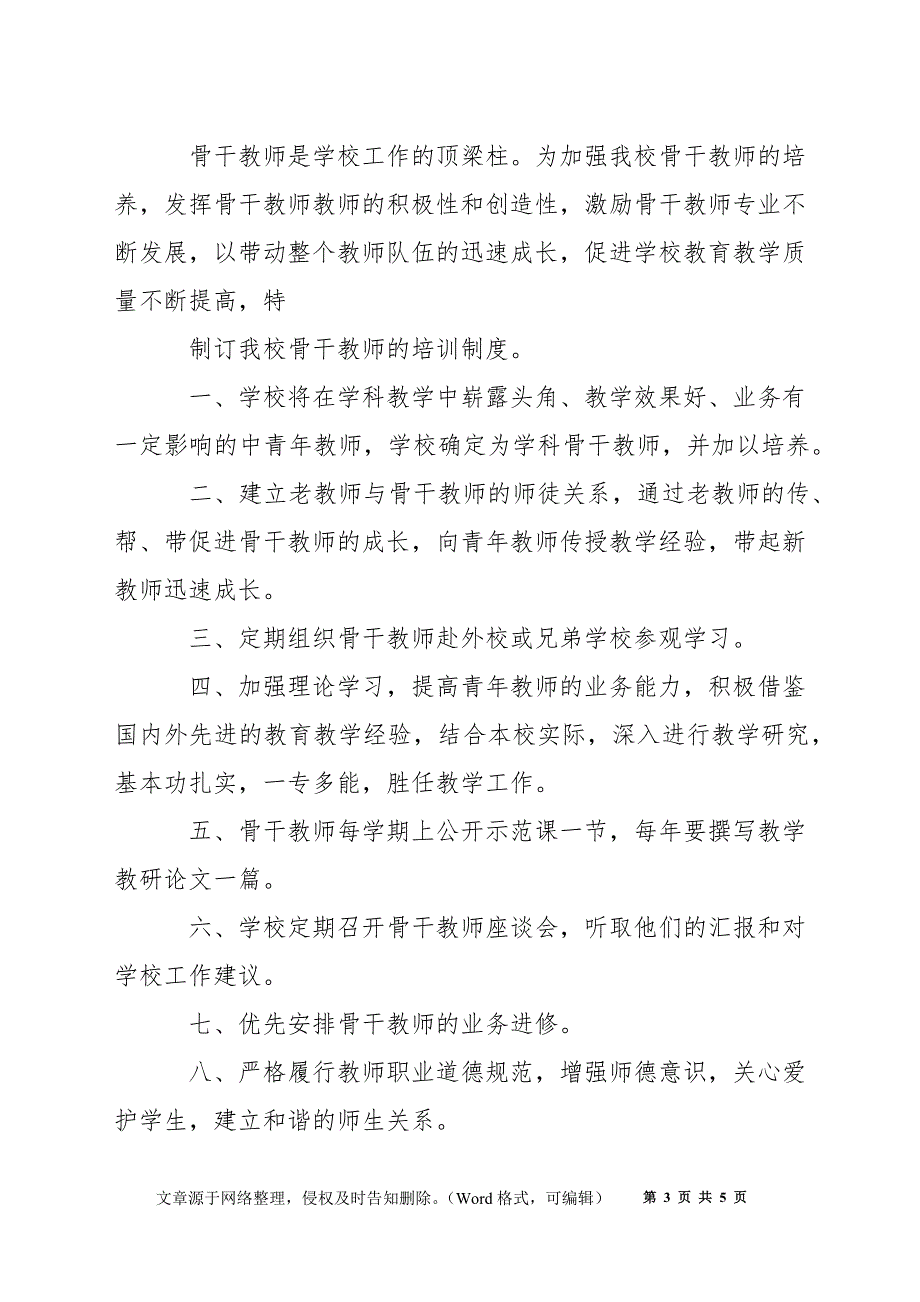 骨干教师是学校工作的顶梁柱。为加强我校骨干教师的培
养，发挥骨干教师教师的积极性和创造性，激励骨干教师专业不
断发展，以带动整个教师队伍的迅速成长，促进学校教育教学质
量不断提高，特
制订我校骨干教师的培训制度。
一、学校将在学科教学中崭露头角、教学效果好、业务有
一定影响的中青年教师，学校确定为学科骨干教师，并加以培养。
二、建立老教师与骨干教师的师徒关系，通过老教师的传、
帮、带促进骨干教师的成长，向青年教师传授教学经验，带起新
教师迅速成长。
三、定期组织骨干教师赴外校或兄弟学校参观学习。
四、加强理论学习，提高青年教师的业务能力，积极借鉴
国内外先进的教育教学经验，结合本校实际，深入进行教学研究，
基本功扎实，一专多能，胜任教学工作。
五、骨干教师每学期上公开示范课一节，每年要撰写教学
教研论文一篇。
六、学校定期召开骨干教师座谈会，听取他们的汇报和对
学校工作建议。
七、优先安排骨干教师的业务进修。
八、严格履行教师职业道德规范，增强师德意识，关心爱
护学生，建立和谐的师生关系。
文章源于网络整理，侵权及时告知删除。（Word 格式，可编辑） 第 3 页 共 5 页